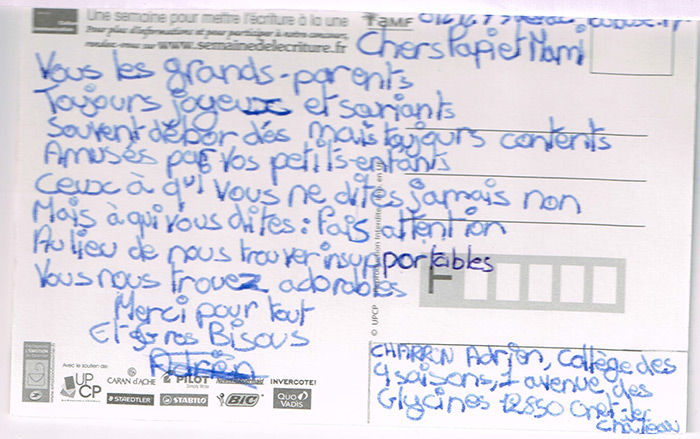 Une semaine pour mettre l'écriture à la une
Pour plus d'informations et pour participer à notre concours,
rendez-vous sur www.semainedelecriture.fr
Chers Papi et Mami
Vous les grands-parents
Toujours joyeux et souriants
Souvent débordés mais toujours contents
Amusés par vos petits-enfants
Ceux à qui vous ne dites jamais non
Mais à qui vous dites : Fais attention
Au lieu de nous trouver insupportables
Vous nous trouvez adorables
Merci pour tout
Et Gros Bisous
Adrien
© UPCP
Avec le soutien de :
UPCP
CARAN D'ACHE
PILOT
INVERCOTE!
STAEDTLER
STABILO
BIC
Quo Vadis
CHARRON Adrien, Collège des
4 saisons, 1 avenue des
Glycines 12850 Onet-le-
château